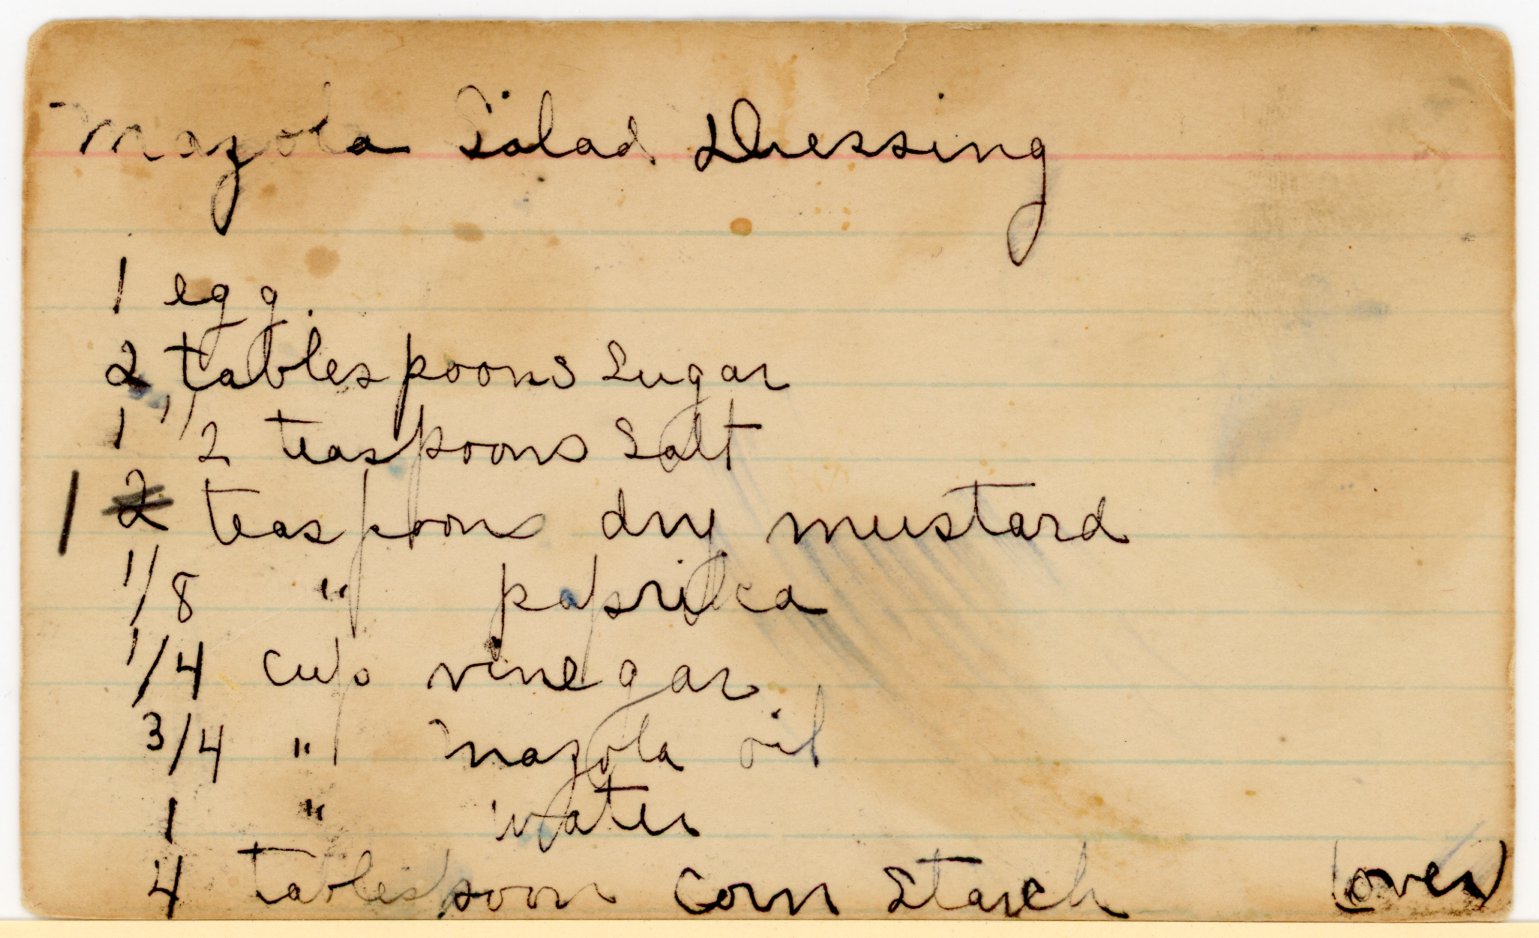 Mazola Salad Dressing
1 egg.
2 tablespoons Sugar
1 1/2 teaspoons Salt
1 2 teaspoons dry mustard
1/8 " paprika
1/4 cup vinegar
3/4 " mazola oil
1 " water
4 tablespoon Corn Starch (over)